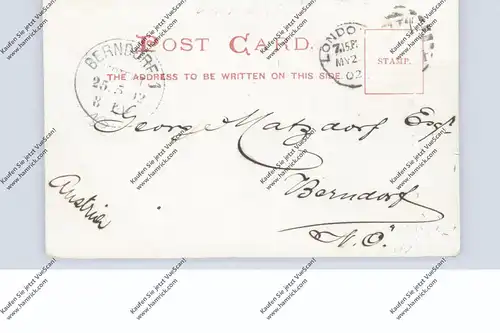 POST CARD.
THE ADDRESS TO BE WRITTEN ON THIS SIDE.
STAMP.
BERNDORF 1
25.5.02
LONDON
7.15 P
MY 2
02
George Matzdorf Esqr
Berndorf
N. Ö.
Austria
Kaufen Sie jetzt VueScan!
www.hamrick.com